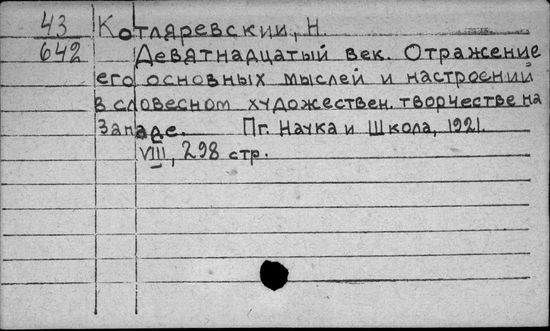 43 Котляревский, Н.
642 Девятнадцатый век. Отражение
его основных мыслей и настроений
в словесном художествен. творчестве на
Западе. Пг. Наука и Школа, 1921.
VIII, 298 стр.